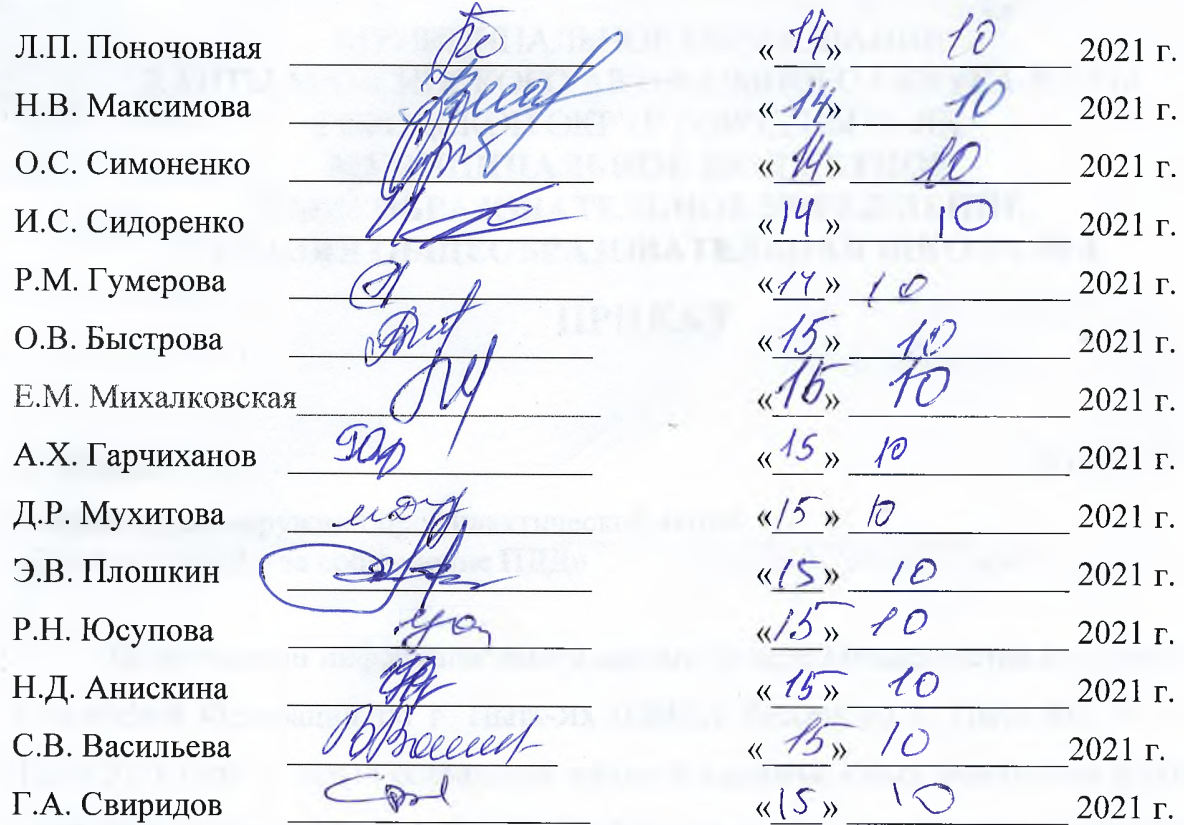 Л.П. Поночовная «14» 10 2021 г.
Н.В. Максимова «14» 10 2021 г.
О.С. Симоненко «14» 10 2021 г.
И.С. Сидоренко «14» 10 2021 г.
Р.М. Гумерова «14» 10 2021 г.
О.В. Быстрова «15» 10 2021 г.
Е.М. Михалковская «15» 10 2021 г.
А.Х. Гарчиханов Гар «15» 10 2021 г.
Д.Р. Мухитова «15» 10 2021 г.
Э.В. Плошкин «15» 10 2021 г.
Р.Н. Юсупова «15» 10 2021 г.
Н.Д. Анискина «15» 10 2021 г.
С.В. Васильева «15» 10 2021 г.
Г.А. Свиридов «15» 10 2021 г.